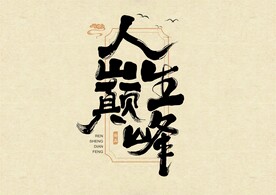 人生巅峰
REN
SHENG
DIAN
FENG